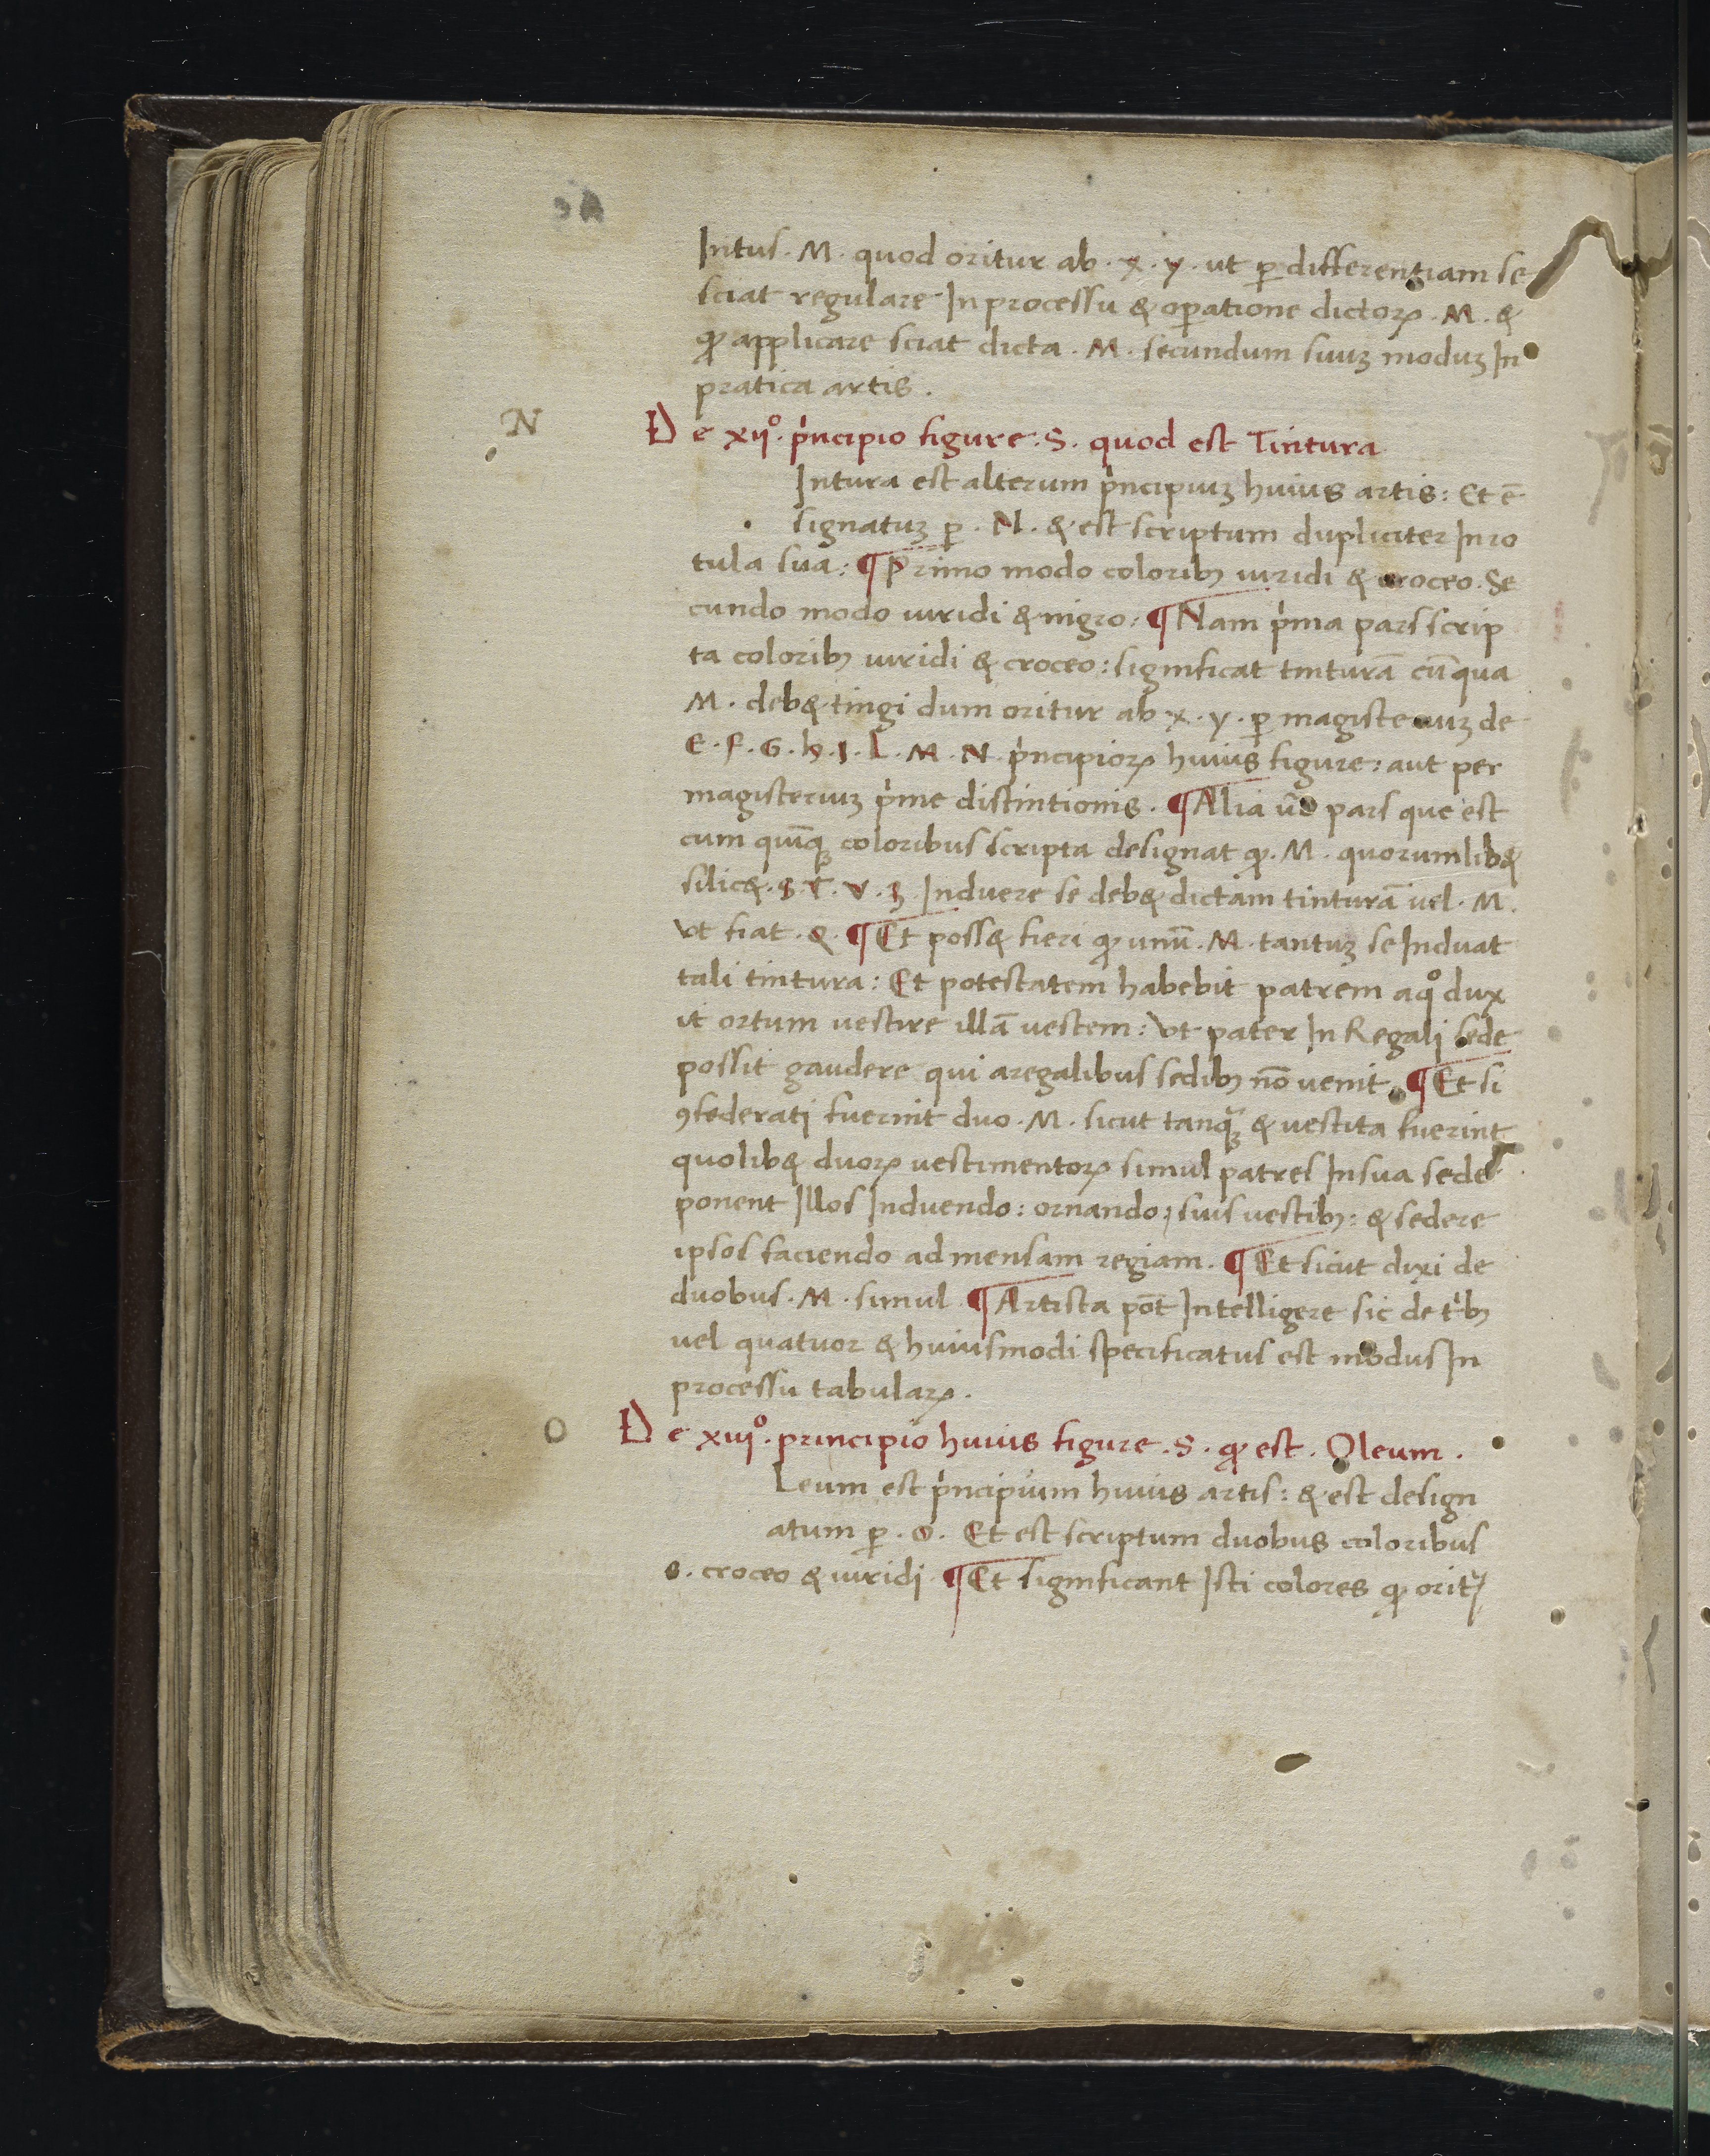 Intus. M. quod oritur ab. x. y. ut ꝑ differentiam se
sciat regulare In processu & oꝑatione dictoꝝ. M. &
ꝙ applicare sciat dicta. M. secundum suuꝫ moduꝫ In
pratica artis.
N
De xij°. pͥncipio figure. S. quod est Tintura
Intura est alterum pͥncipiuꝫ huius artis: Et ē
signatuꝫ ꝑ. N. & est scriptum dupliciter In ro
tula sua: ¶ Primo modo coloribꝫ uiridi & croceo. Se
cundo modo uiridi & nigro: ¶ Nam pͥma pars scrip
ta coloribꝫ uiridi & croceo: significat tinturā cū qua
M. deb& tingi dum oritur ab. x. y. ꝑ magisteriuꝫ de
E. F. G. h. I. L. M. N. pͥncipioꝝ huius figure: aut per
magisteriuꝫ pͥme distintionis. ¶ Alia ūo pars que est
cum quīqꝫ coloribus scripta designat ꝙ. M. quorumlib&
silic&. S. T. V. Induere se deb& dictam tinturā uel. M.
Vt fiat. Q. ¶ Et poss& fieri ꝙ unū. M. tantuꝫ se Induat
tali tintura: Et potestatem habebit patrem a q° dux
it ortum uestire illā uestem: Vt pater In Regalj sede
possit gaudere qui a regalibus sedibꝫ nō uenit. ¶ Et si
ꝯfederatj fuerint duo. M. sicut tanqꝫ & uestita fuerint
quolib& duoꝝ uestimentoꝝ simul patres In sua sede
ponent Illos Induendo: ornando; suis uestibꝫ: & sedere
ipsos faciendo ad mensam regiam. ¶ Et sicut dixi de
duobus. M. simul ¶ Artista pōt Intelligere sic de tͥbꝫ
uel quatuor & huiusmodi specificatus est modus In
processu tabulaꝝ.
O
De xiij°. principio huius figure. S. ꝙ est. Oleum.
Leum est pͥncipium huius artis: & est design
atum ꝑ. o. Et est scriptum duobus coloribus
s. croceo & uiridj. ¶ Et significant Isti colores ꝙ orit᷑